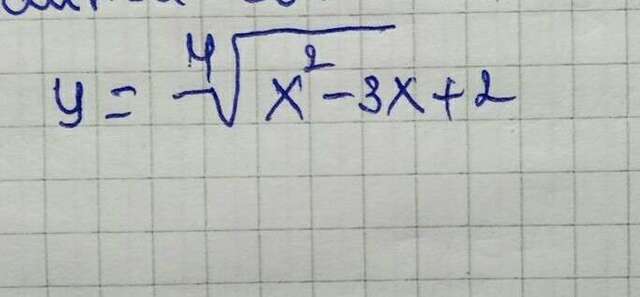 y = ∜(x² - 3x + 2)